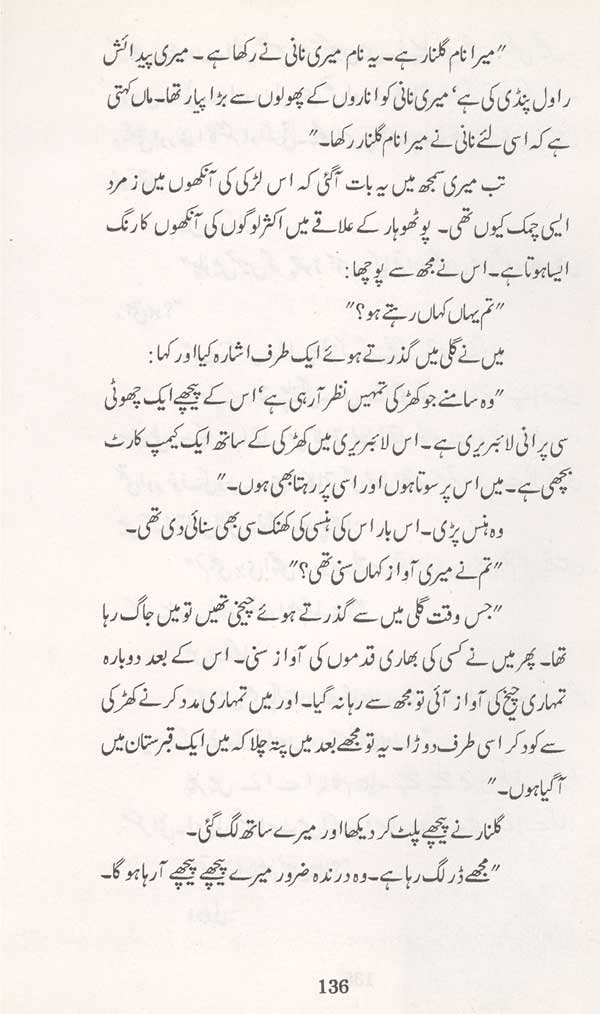 "میرا نام گلنار ہے۔ یہ نام میری نانی نے رکھا ہے۔ میری پیدائش
راول پنڈی کی ہے، میری نانی کو اناروں کے پھولوں سے بڑا پیار تھا۔ ماں کہتی
ہے کہ اسی لئے نانی نے میرا نام گلنار رکھا۔"
تب میری سمجھ میں یہ بات آگئی کہ اس لڑکی کی آنکھوں میں زمرد
ایسی چمک کیوں تھی۔ پوٹھوہار کے علاقے میں اکثر لوگوں کی آنکھوں کا رنگ
ایسا ہوتا ہے۔ اس نے مجھ سے پوچھا:
"تم یہاں کہاں رہتے ہو؟"
میں نے گلی میں گذرتے ہوئے ایک طرف اشارہ کیا اور کہا:
"وہ سامنے جو کھڑکی تمہیں نظر آرہی ہے، اس کے پیچھے ایک چھوٹی
سی پرانی لائبریری ہے۔ اس لائبریری میں کھڑکی کے ساتھ ایک کیمپ کارٹ
بچھی ہے۔ میں اس پر سوتا ہوں اور اسی پر رہتا بھی ہوں۔"
وہ ہنس پڑی۔ اس بار اس کی ہنسی کی کھنک سی بھی سنائی دی تھی۔
"تم نے میری آواز کہاں سنی تھی؟"
"جس وقت گلی میں سے گذرتے ہوئے چیخی تھیں تو میں جاگ رہا
تھا۔ پھر میں نے کسی کی بھاری قدموں کی آواز سنی۔ اس کے بعد دوبارہ
تمہاری چیخ کی آواز آئی تو مجھ سے رہا نہ گیا۔ اور میں تمہاری مدد کرنے کھڑکی
سے کود کر اسی طرف دوڑا۔ یہ تو مجھے بعد میں پتہ چلا کہ میں ایک قبرستان میں
آگیا ہوں۔"
گلنار نے پیچھے پلٹ کر دیکھا اور میرے ساتھ لگ گئی۔
"مجھے ڈر لگ رہا ہے۔ وہ درندہ ضرور میرے پیچھے پیچھے آرہا ہو گا۔
136